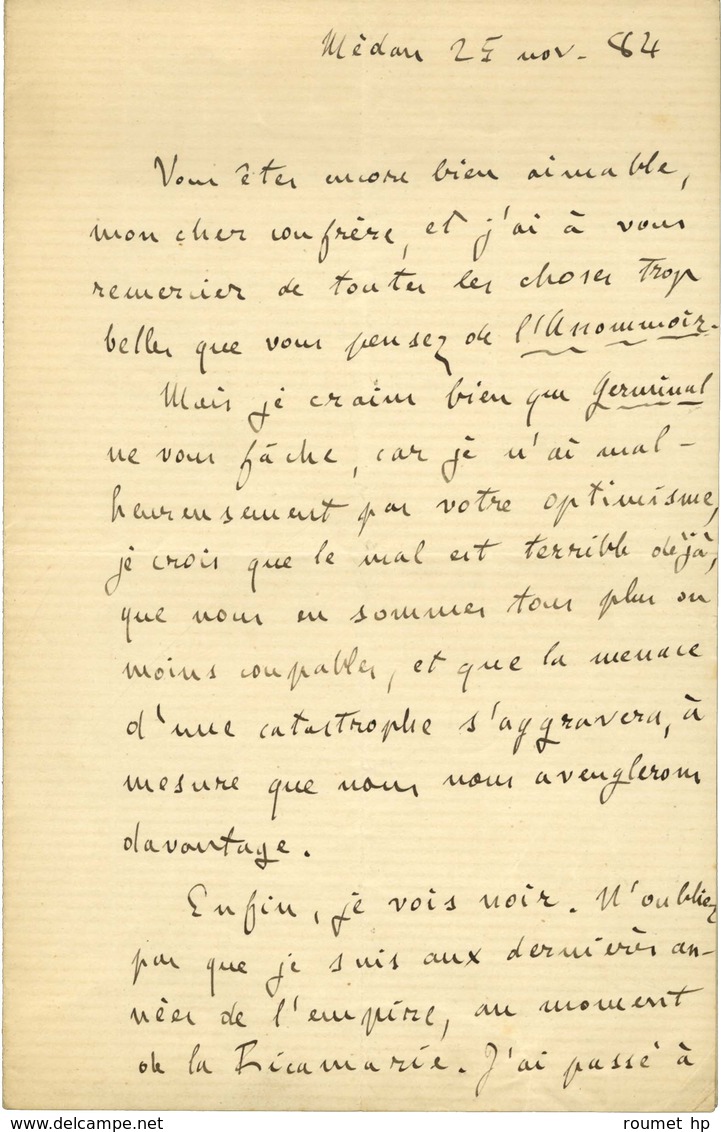 Médan 25 nov. 84
Vous êtes encore bien aimable,
mon cher confrère, et j'ai à vous
remercier de toutes les choses trop
belles que vous pensez de l'Assommoir.
Mais je crains bien que Germinal
ne vous fâche, car je n'ai mal-
heureusement pas votre optimisme,
je crois que le mal est terrible déjà,
que nous en sommes tous plus ou
moins coupables, et que la menace
d'une catastrophe s'aggravera, à
mesure que nous nous aveuglerons
davantage.
Enfin, je vois noir. N'oubliez
pas que je suis aux dernières an-
nées de l'empire, au moment
de la Ricamarie. J'ai passé à
roumet hp